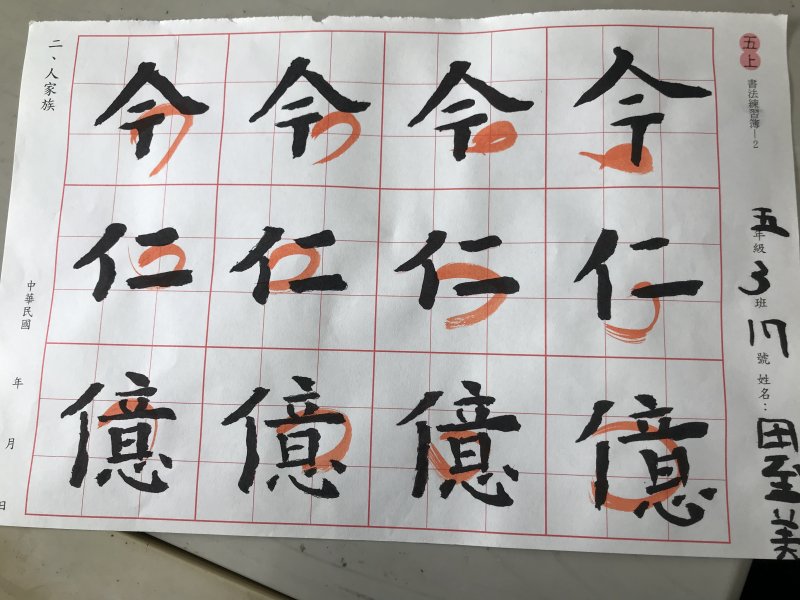 五上 書法練習簿-2
五年級3班17號 姓名:田至美
令令令令
仁仁仁仁
億億億億
二、人家族
中華民國 年 月 日